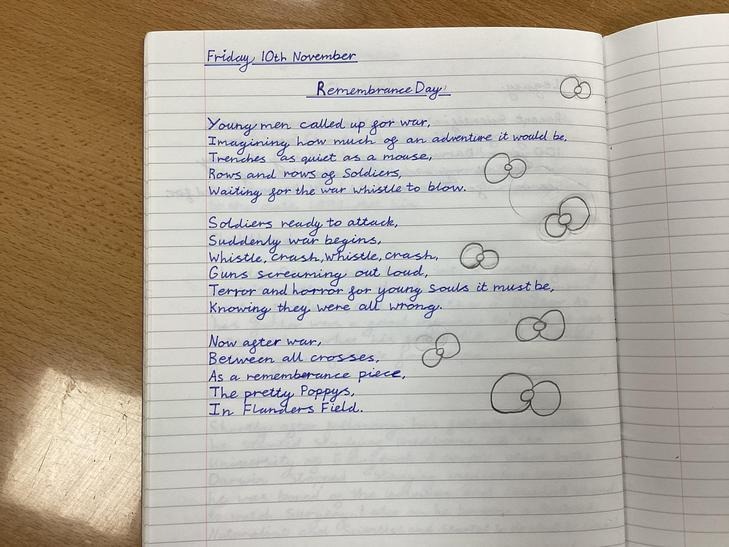 Friday, 10th November
Remembrance Day
Young men called up for war,
Imagining how much of an adventure it would be,
Trenches as quiet as a mouse,
Rows and rows of Soldiers,
Waiting for the war whistle to blow.
Soldiers ready to attack,
Suddenly war begins,
Whistle, crash, whistle, crash,
Guns screaming out loud,
Terror and horror for young souls it must be,
Knowing they were all wrong.
Now after war,
Between all crosses,
As a rememberance piece,
The pretty Poppys,
In Flanders Field.